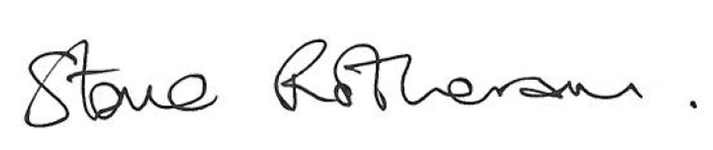 Steve Rotheram.